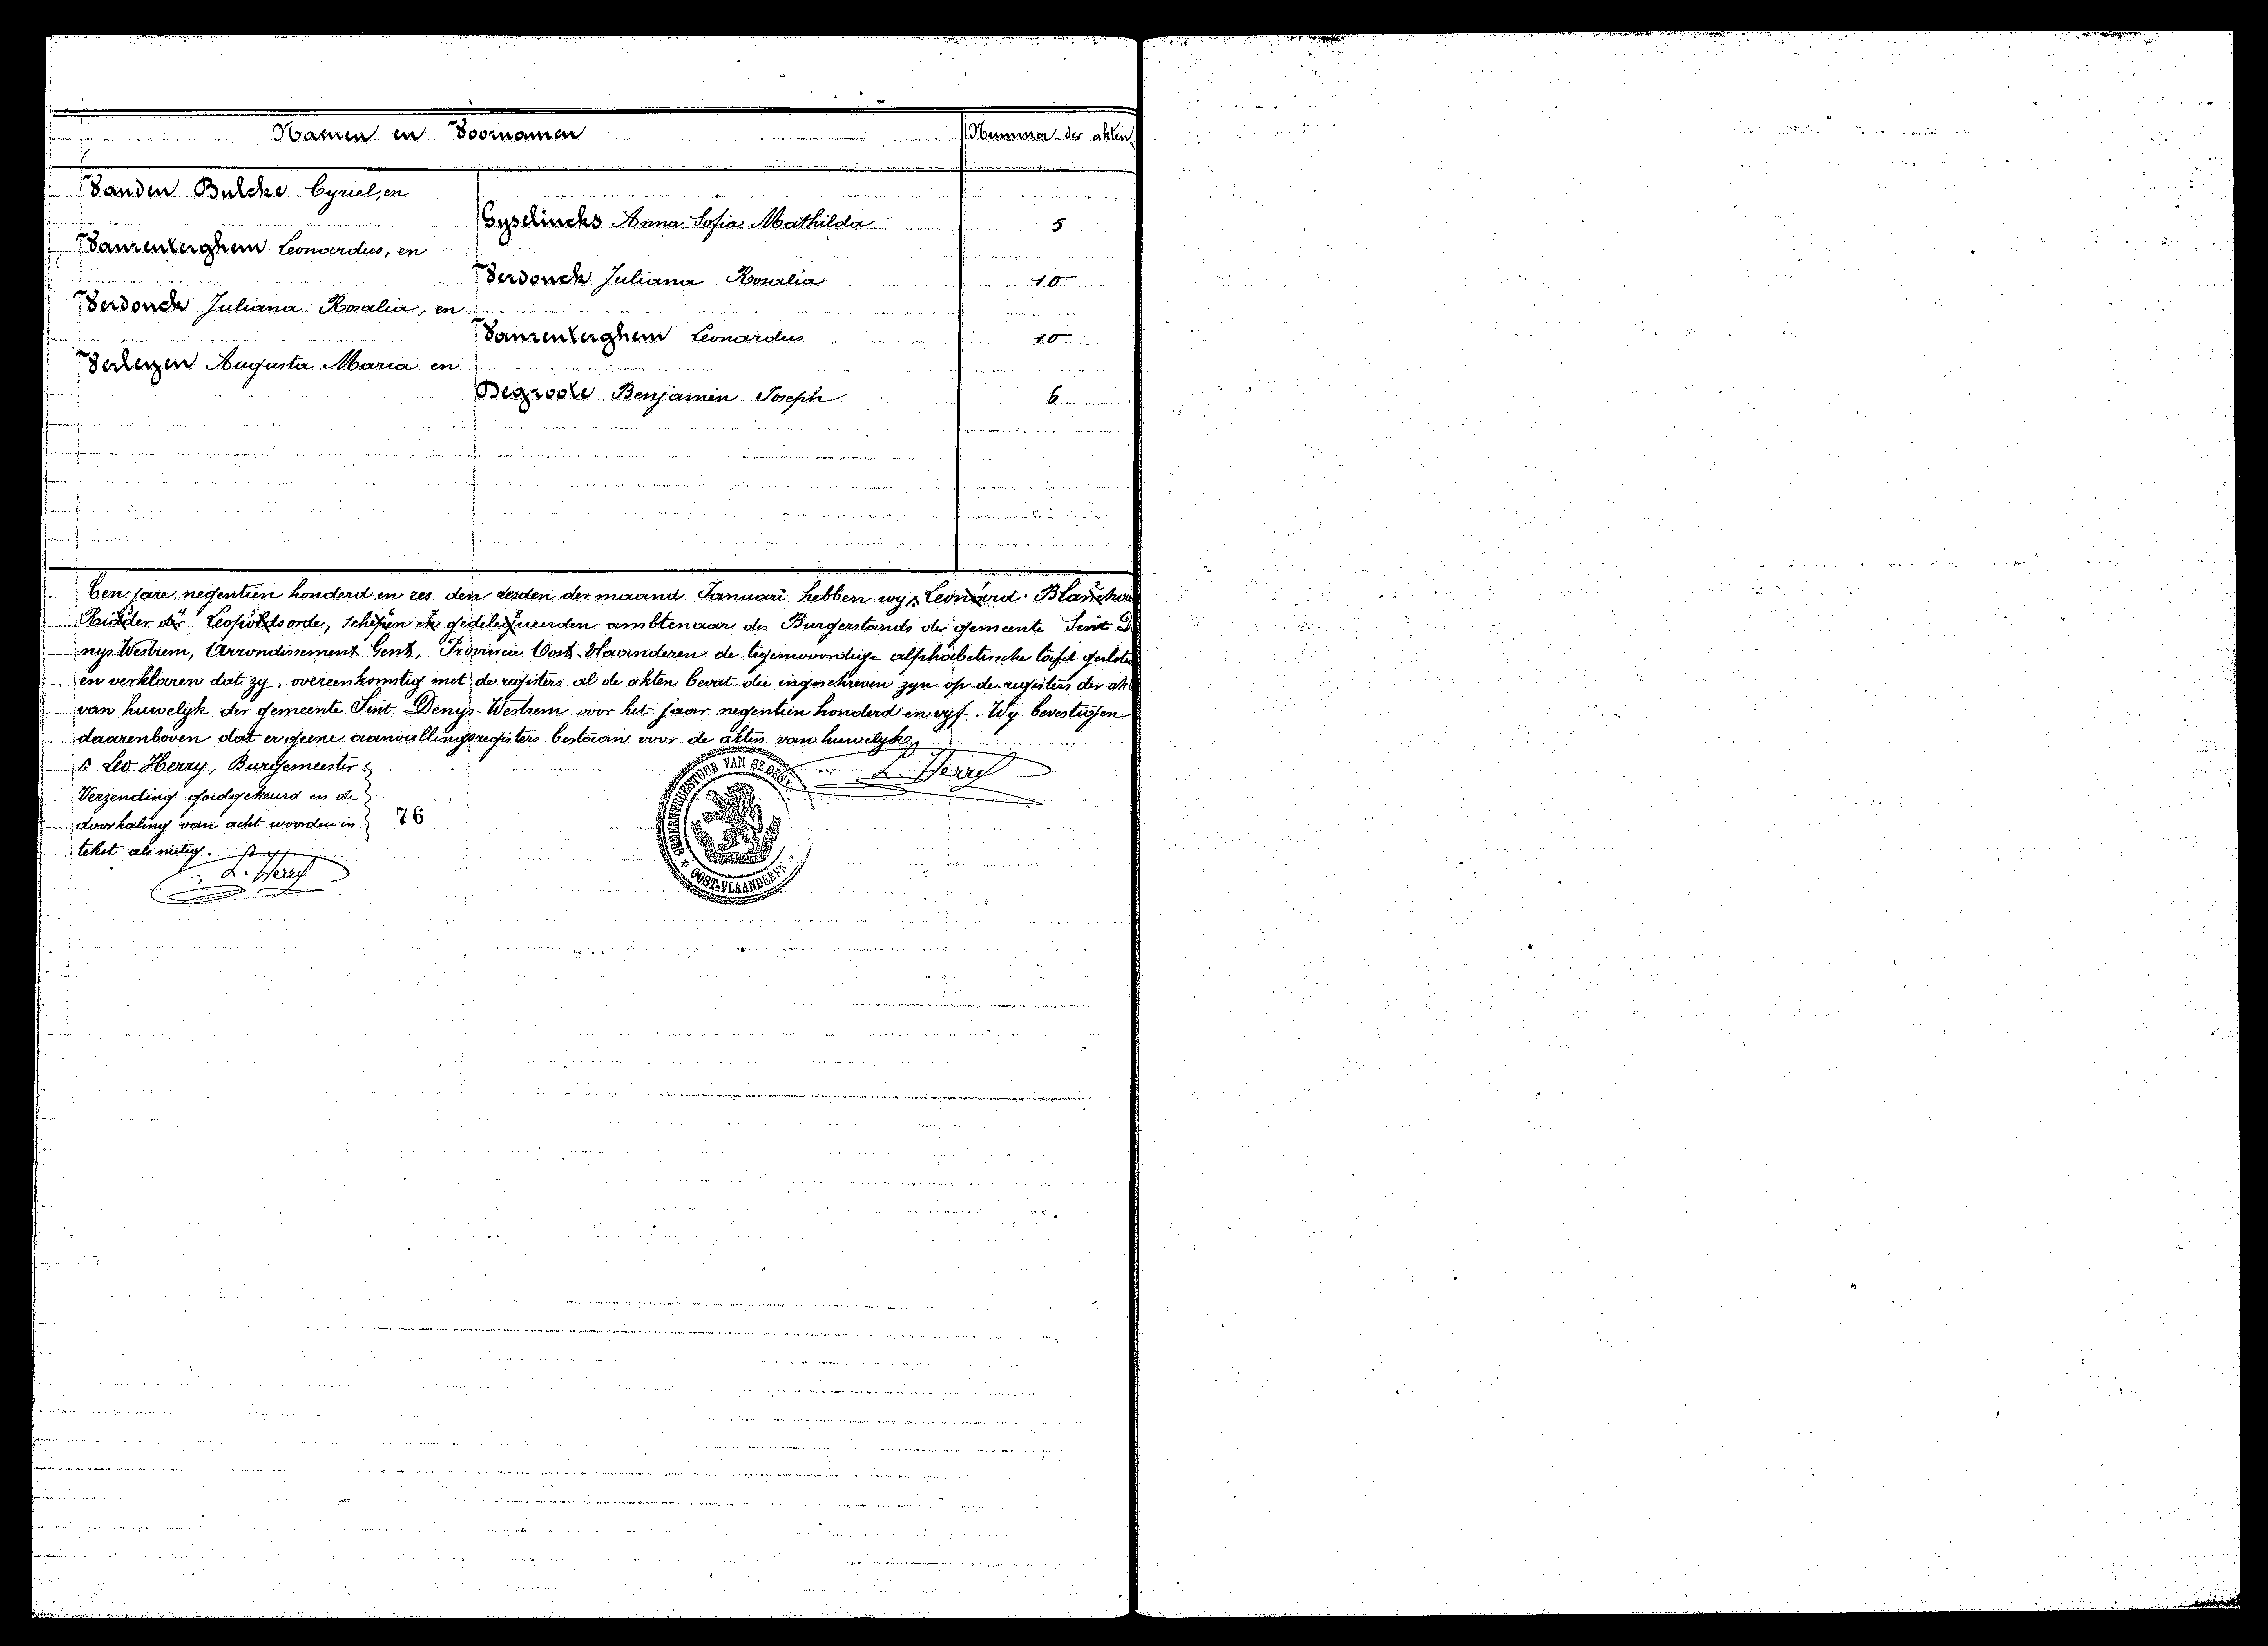 Namen en Voornamen
Nummer der akten
Vanden Bulcke Cyriel, en
Gyselincks Anna Sofia Mathilda 5
Vanrenterghem Leonardus, en
Verdonck Juliana Rosalia 10
Verdonck Juliana Rosalia, en
Vanrenterghem Leonardus 10
Verleyen Augusta Maria en
Degroote Benjamin Joseph 6
Ten jare negentien honderd en zes den derden der maand Januari hebben wy, Leonard
Ridder der Leopoldsorde, schepen en gedelegueerden ambtenaar des Burgerstands der gemeente Sint D
nys-Westrem, Arrondissement Gent, Provincie Oost-Vlaanderen de tegenwoordige alphabetische tafel gesloten
en verklaren dat zy, overeenkomstig met de registers al de akten bevat die ingeschreven zyn op de registers der akt
van huwelyk der gemeente Sint Denys-Westrem voor het jaar negentien honderd en vijf. Wy bevestigen
daarenboven dat er geene aanvullingsregisters bestaan voor de akten van huwelyk
Leo Herry, Burgemeester
L. Herry
Verzending goedgekeurd en de
doorhaling van acht woorden in 76
tekst als nietig.
L. Herry
GEMEENTEBESTUUR VAN ST DENYS
OOST-VLAANDEREN